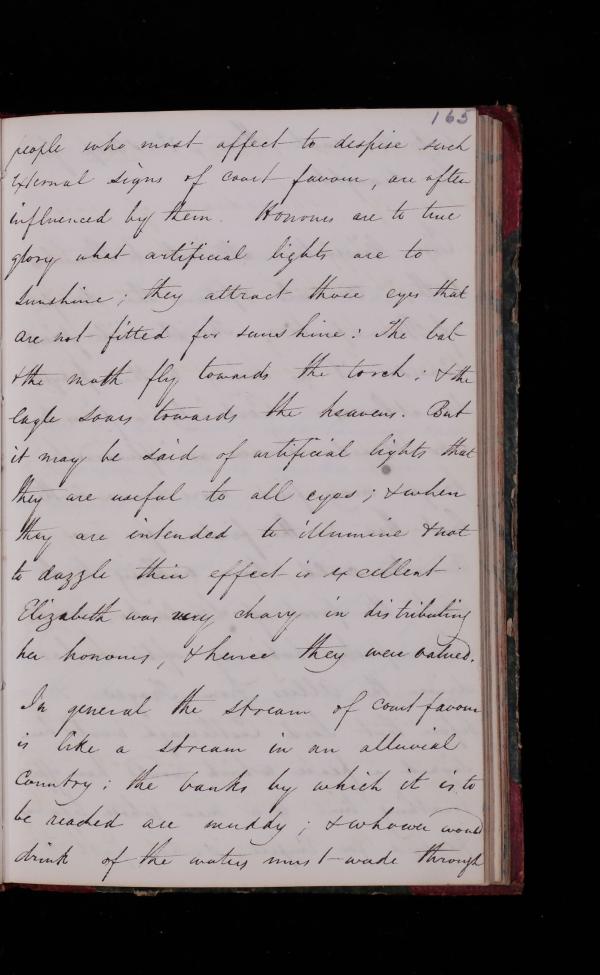 165
people who most affect to despise such
external signs of court favour, are often
influenced by them. Honours are to true
glory what artificial lights are to
sunshine; they attract those eyes that
are not fitted for sunshine: The bat
& the moth fly towards the torch; & the
eagle soars towards the heavens. But
it may be said of artificial lights that
they are useful to all eyes; & when
they are intended to illumine & not
to dazzle their effect is excellent.
Elizabeth was very chary in distributing
her honours, & hence they were valued.
In general the stream of court favour
is like a stream in an alluvial
Country; the banks by which it is to
be reached are muddy; & whoever would
drink of the waters must wade through